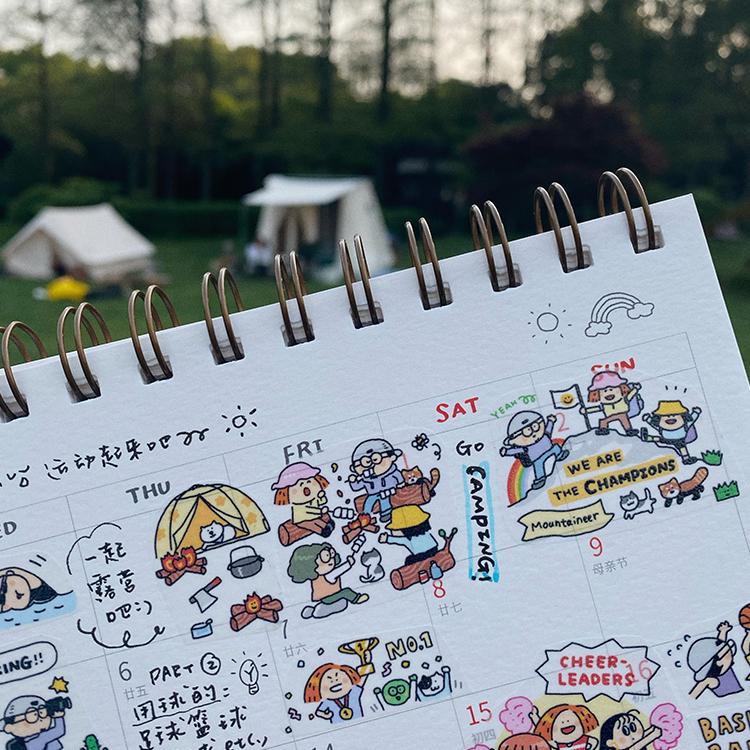 运动起来吧
ED
THU
FRI
SAT
SUN
YEAH
2
Go
CAMPING!
WE ARE
THE CHAMPIONS
Mountaineer
一起
露营
吧:)
8
廿七
9
母亲节
RING!!
6
廿五
PART ②
用球的:
足球 篮球
7
廿六
NO.1
CHEER-
LEADERS
15
初四
16